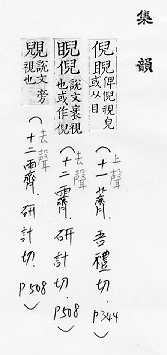 集韻
倪睨俾倪視皃或从目 上聲 (十一薺. 吾禮切. P344)
睨倪說文衺視也或作倪 去聲 (十二霽. 研計切. P508)
說文㫄視也 去聲 (十二霽. 研計切. P508)